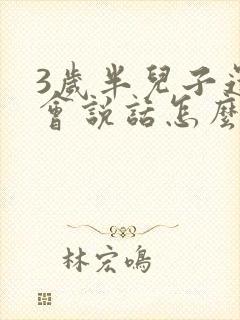 3歲半兒子
會說話怎麼
林宏鳴